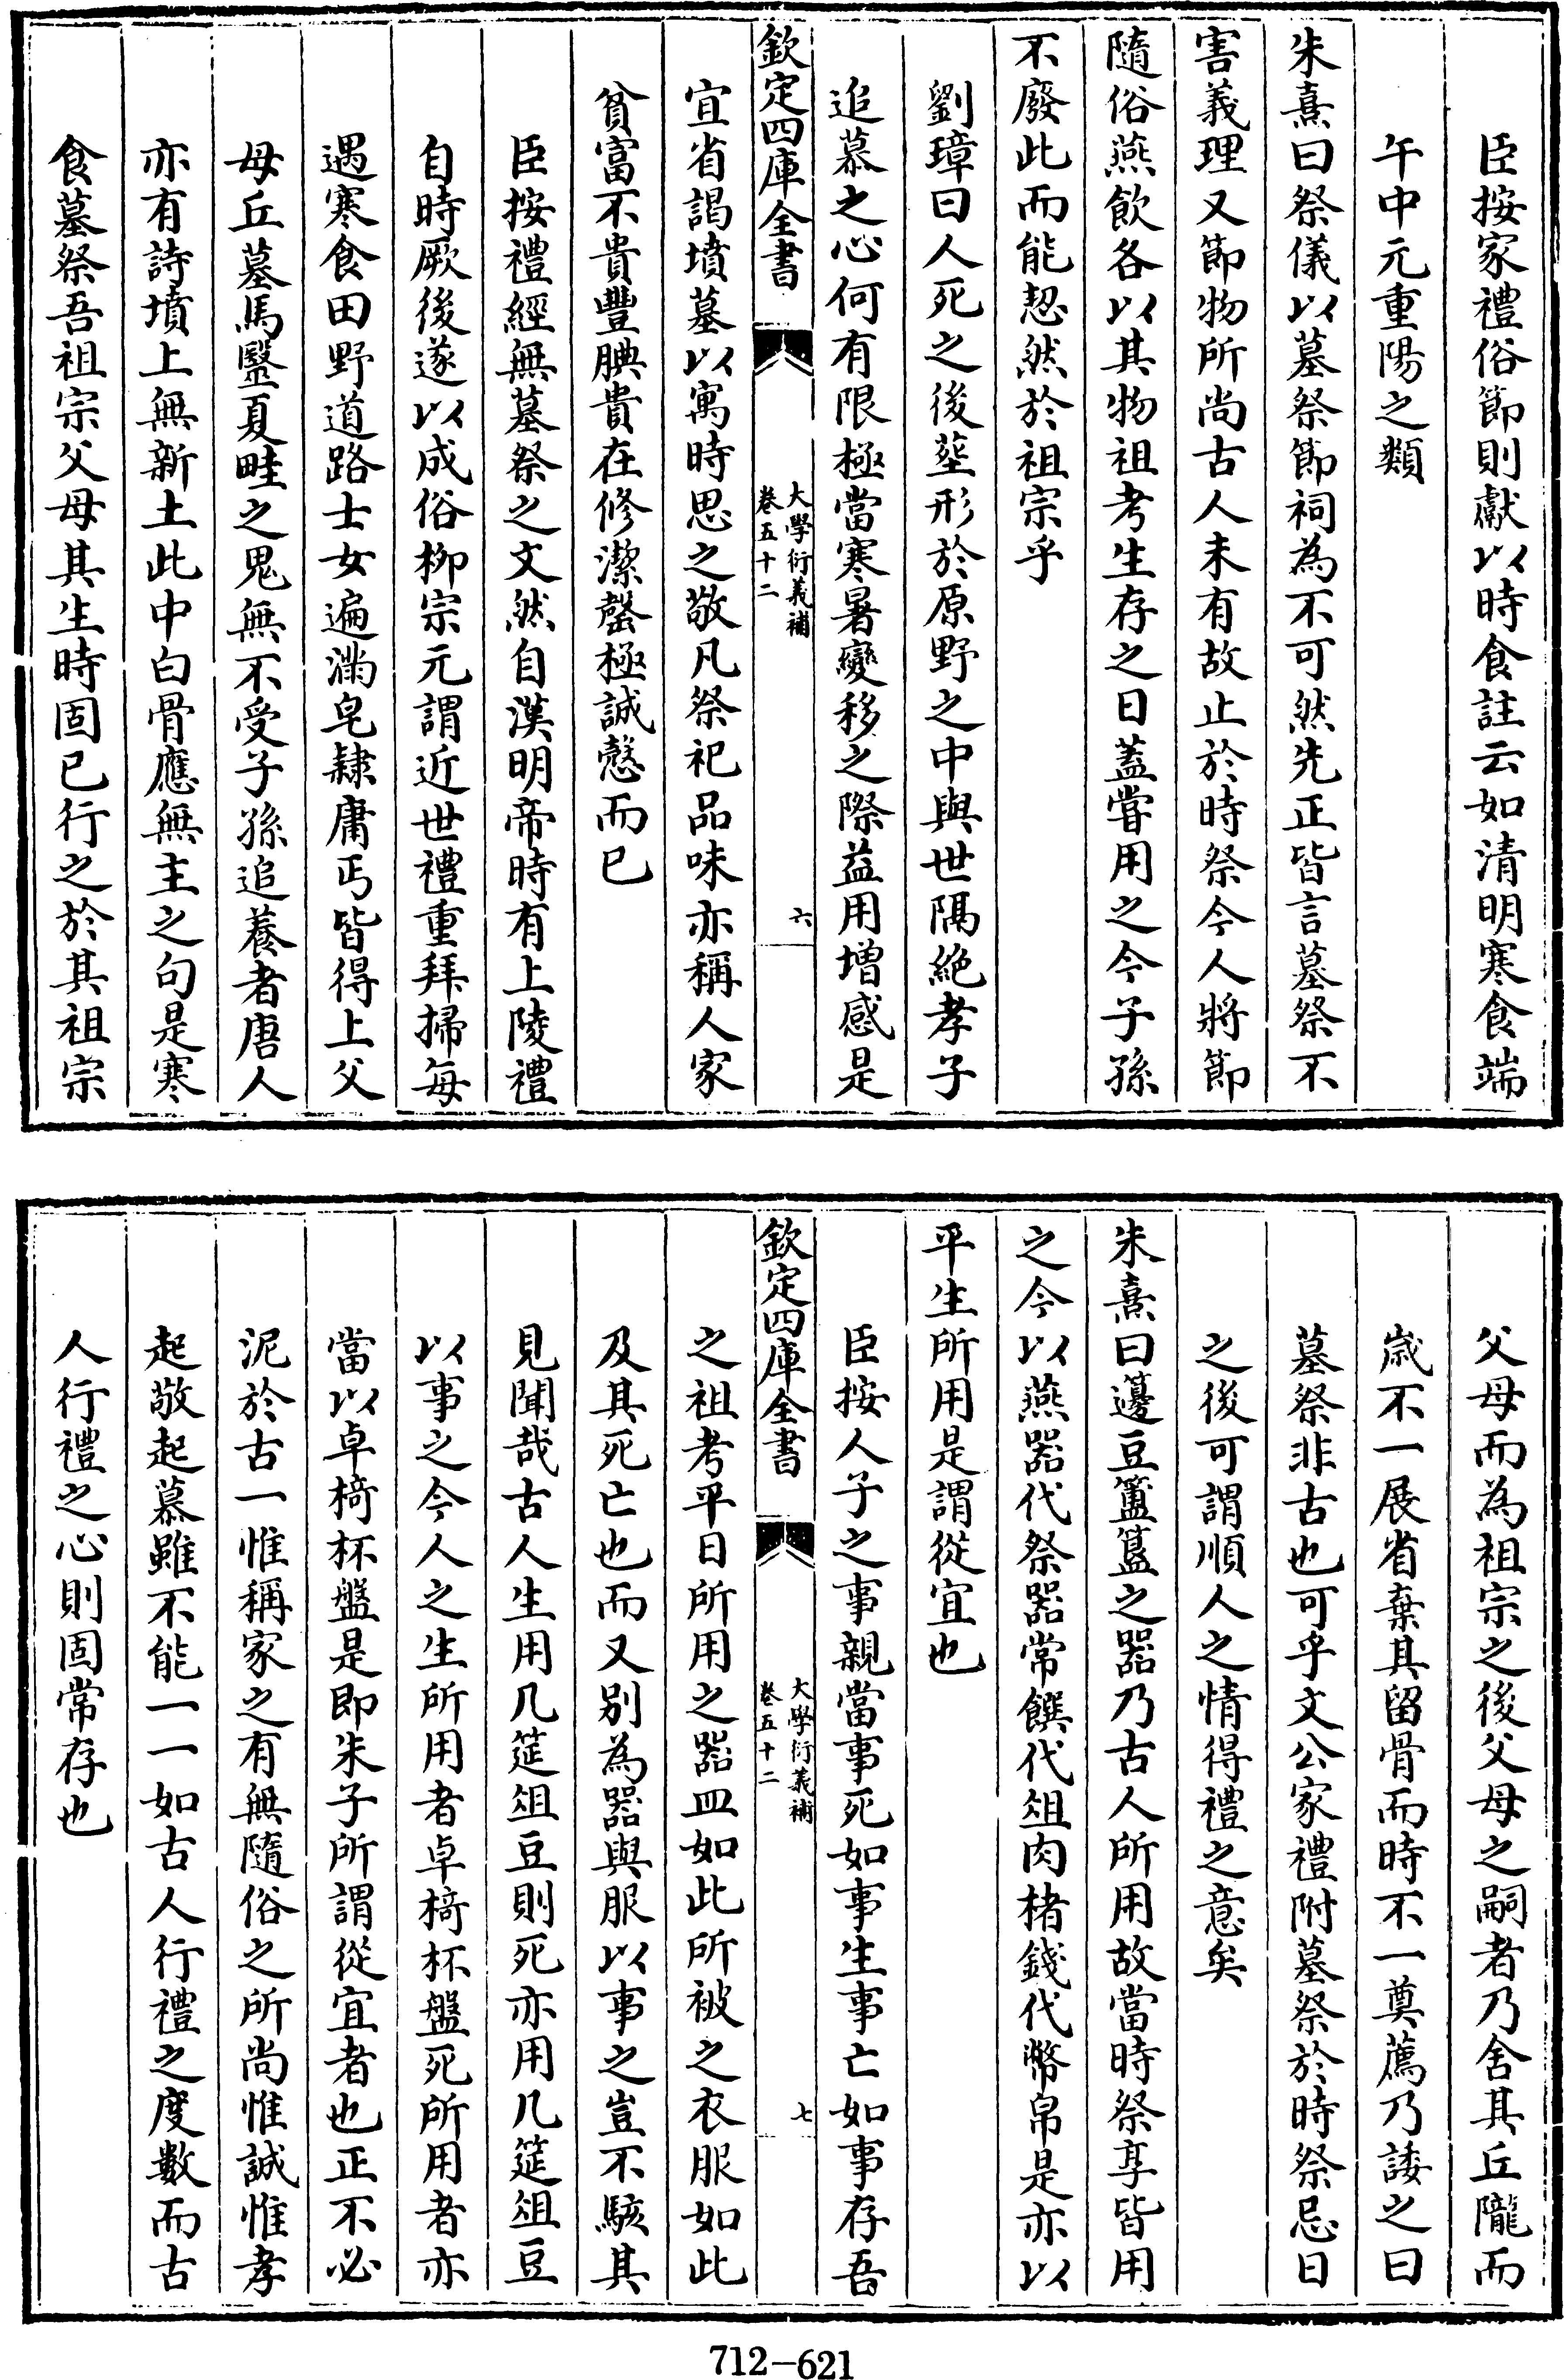 臣按家禮俗節則獻以時食註云如清明寒食端
午中元重陽之類
朱熹曰祭儀以墓祭節祠為不可然先正皆言墓祭不
害義理又節物所尚古人未有故止於時祭今人將節
隨俗燕飲各以其物祖考生存之日蓋嘗用之今子孫
不廢此而能恝然於祖宗乎
劉璋曰人死之後塟形於原野之中與世隔絶孝子
追慕之心何有限極當寒暑變移之際益用增感是
欽定四庫全書
大學衍義補
卷五十二
六
宜省謁墳墓以寓時思之敬凡祭祀品味亦稱人家
貧富不貴豐腆貴在修潔罄極誠慤而已
臣按禮經無墓祭之文然自漢明帝時有上陵禮
自時厥後遂以成俗柳宗元謂近世禮重拜掃每
遇寒食田野道路士女遍滿皂隸庸丐皆得上父
母丘墓馬醫夏畦之鬼無不受子孫追養者唐人
亦有詩墳上無新土此中白骨應無主之句是寒
食墓祭吾祖宗父母其生時固已行之於其祖宗
父母而為祖宗之後父母之嗣者乃舍其丘隴而
歲不一展省棄其留骨而時不一奠薦乃諉之曰
墓祭非古也可乎文公家禮附墓祭於時祭忌日
之後可謂順人之情得禮之意矣
朱熹曰籩豆簠簋之器乃古人所用故當時祭享皆用
之今以燕器代祭器常饌代俎肉楮錢代幣帛是亦以
平生所用是謂從宜也
臣按人子之事親當事死如事生事亡如事存吾
欽定四庫全書
大學衍義補
卷五十二
七
之祖考平日所用之器皿如此所被之衣服如此
及其死亡也而又别為器與服以事之豈不駭其
見聞哉古人生用几筵俎豆則死亦用几筵俎豆
以事之今人之生所用者卓椅杯盤死所用者亦
當以卓椅杯盤是即朱子所謂從宜者也正不必
泥於古一惟稱家之有無隨俗之所尚惟誠惟孝
起敬起慕雖不能一一如古人行禮之度數而古
人行禮之心則固常存也
712-621